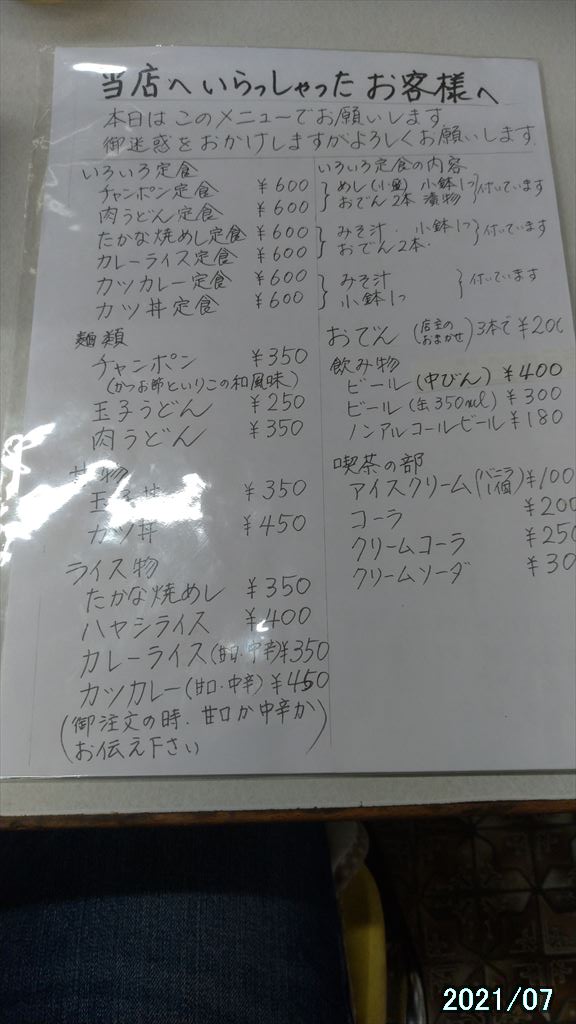 当店へいらっしゃったお客様へ
本日はこのメニューでお願いします.
御迷惑をおかけしますがよろしくお願いします.
いろいろ定食
チャンポン定食 ¥600
肉うどん定食 ¥600
たかな焼めし定食 ¥600
カレーライス定食 ¥600
カツカレー定食 ¥600
カツ丼定食 ¥600
麺類
チャンポン ¥350
(かつお節といりこの和風味)
玉子うどん ¥250
肉うどん ¥350
丼物
玉子丼 ¥350
カツ丼 ¥450
ライス物
たかな焼めし ¥350
ハヤシライス ¥400
カレーライス(甘口・中辛)¥350
カツカレー(甘口・中辛)¥450
(御注文の時、甘口か中辛か
お伝え下さい)
いろいろ定食の内容
めし(小盛) 小鉢1つ
おでん2本 漬物 付いています
みそ汁. 小鉢1つ
おでん2本. 付いています
みそ汁
小鉢1つ 付いています
おでん(店主のおまかせ)3本で¥200
飲み物
ビール(中びん) ¥400
ビール(缶350ml) ¥300
ノンアルコールビール ¥180
喫茶の部
アイスクリーム(バニラ1個)¥100
コーラ ¥200
クリームコーラ ¥250
クリームソーダ ¥30
2021/07